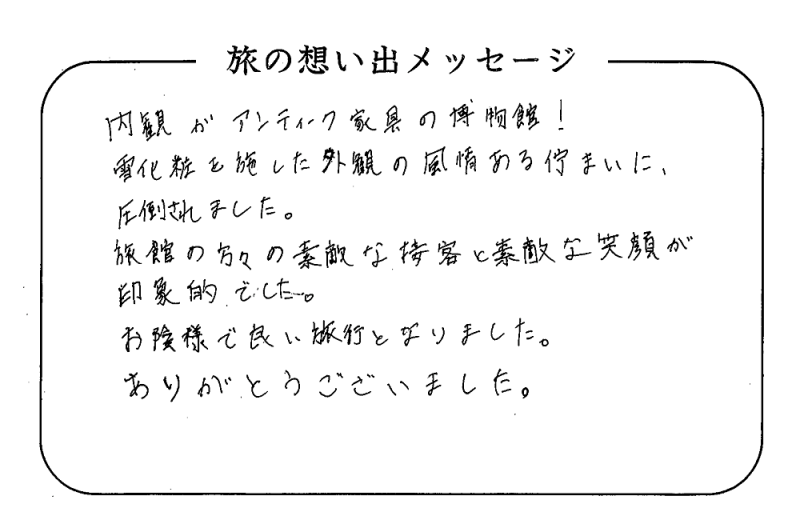 旅の想い出メッセージ
内観がアンティーク家具の博物館!
雪化粧を施した外観の風情ある佇まいに、
圧倒されました。
旅館の方々の素敵な接客と素敵な笑顔が
印象的でした。
お陰様で良い旅行となりました。
ありがとうございました。